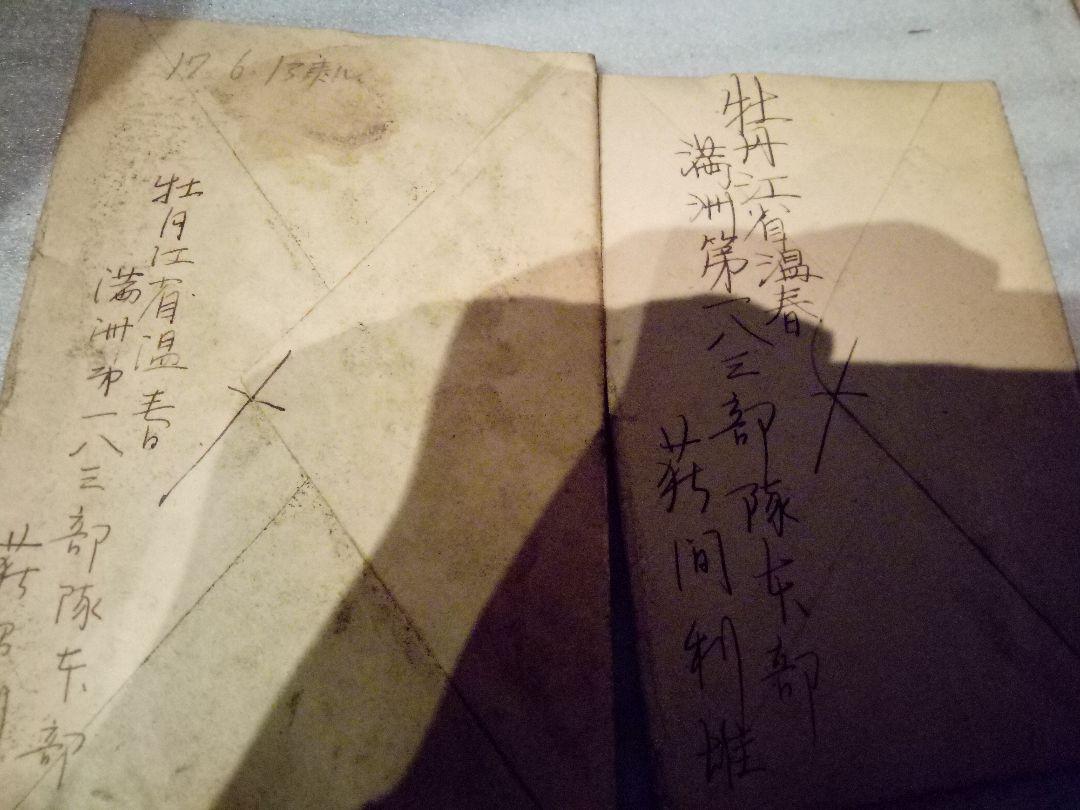 17.6.13
牡丹江省温春
満洲第一八三部隊本部
萩間利雄
牡丹江省温春
満洲第一八三部隊本部
萩間利